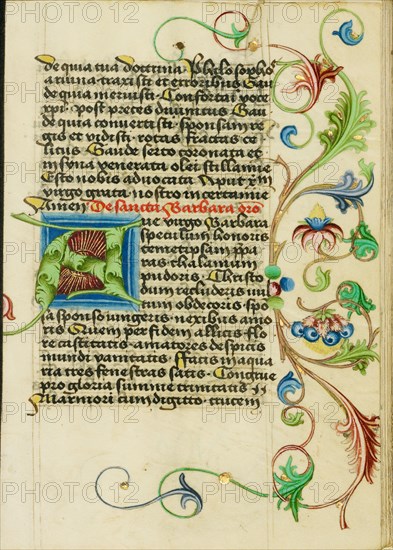 de qua tua doctrina Phylosopho
a ruina traxisti et erroribus Gau
de quia meruisti Confortari voce
xpi post preces divinitus Gau
de quia convertisti sponsam re
gis et vidisti rotas fractas ce
litus Gaude serto coronata et
insyna venerata olei stillamine
Esto nobis advocata Aput
virgo grata nostro in certamine
Amen De sancta Barbara
ve virgo Barbara
speculum honoris
demetrosam ppa
ras thalamum
pudoris Christo
dum recluderis mun
dum obdecoris spo
sa sponso iungeris nexibus amo
ris Quem perfidem allicis flo
re castitatis amatores despicis
mundi vanitatis Facis in aqua
ria tres fenestras satis Congrue
pro gloria summe trinitatis In
Marmori cum digitto crucem
PHOTO12 PHOTO12 PHOTO12